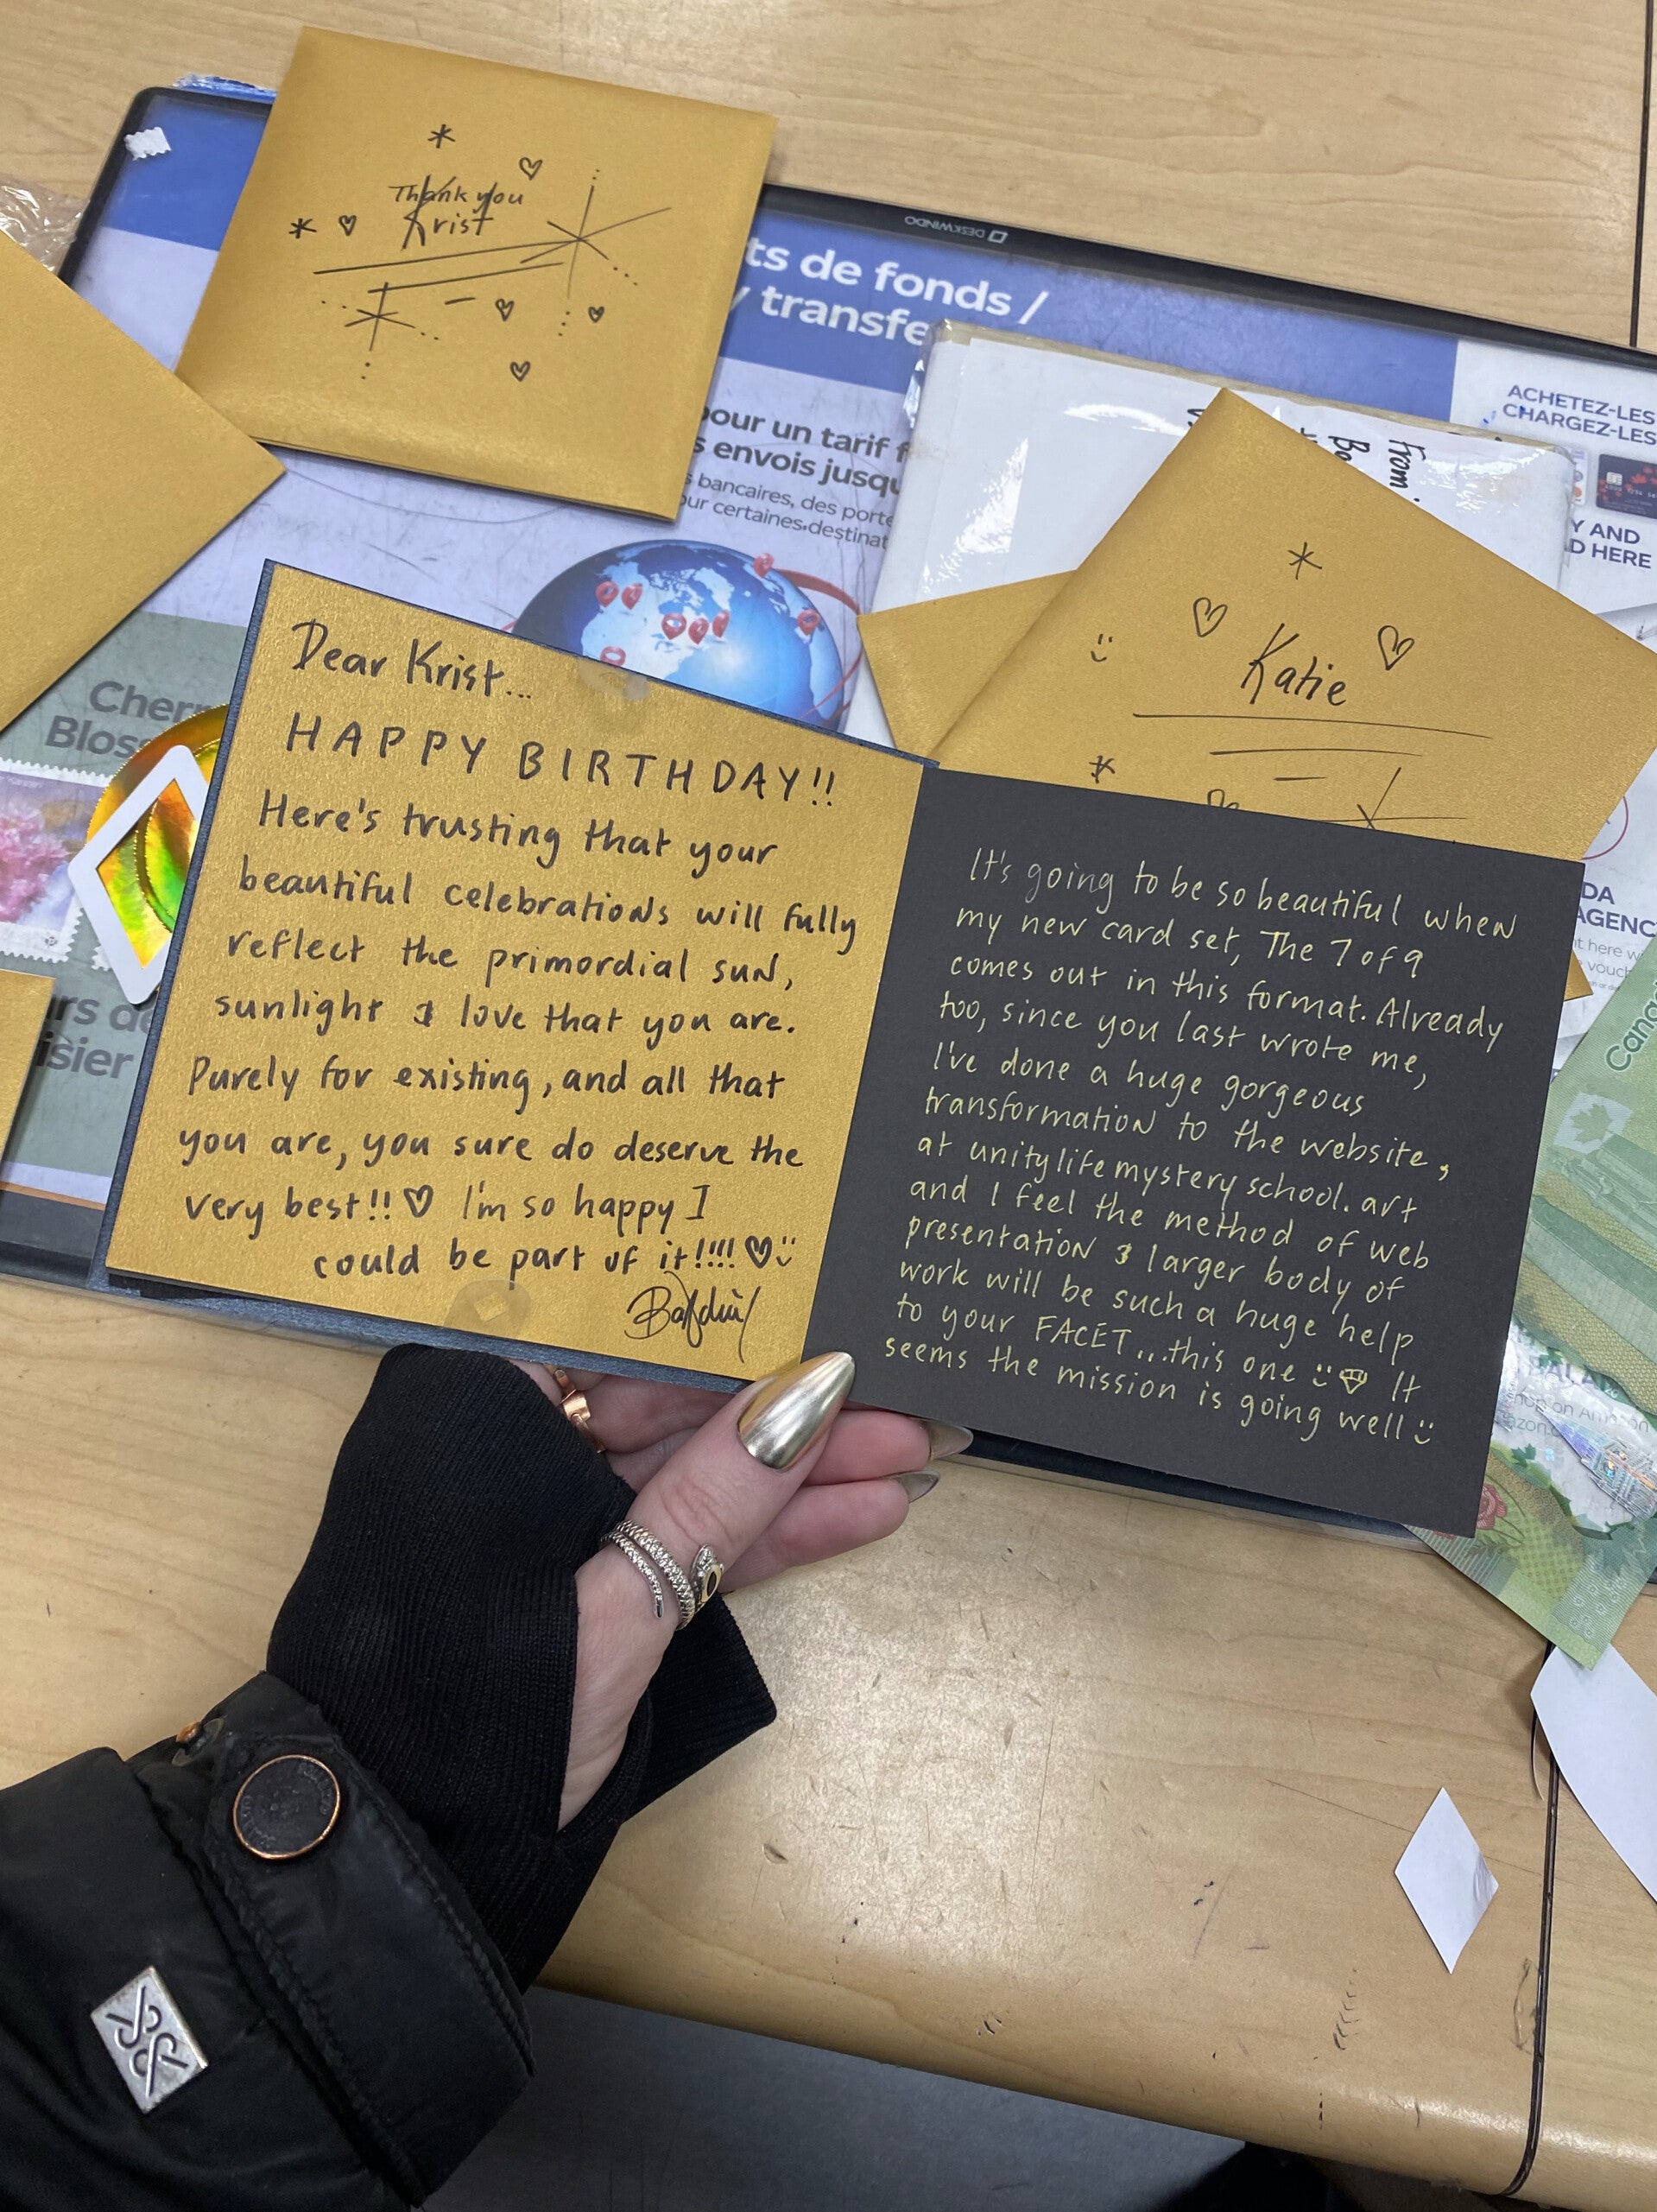 Thank you
Krist
DESKWINDO
ts de fonds /
/ transfe
ACHETEZ-LES
CHARGEZ-LES
pour un tarif f
s envois jusqu
s bancaires, des porte
ur certaines destinat
From:
Y AND
D HERE
Katie
Cherr
Bloss
rs de
isier
Dear Krist...
HAPPY BIRTHDAY!!
Here's trusting that your
beautiful celebrations will fully
reflect the primordial sun,
sunlight & love that you are.
Purely for existing, and all that
you are, you sure do deserve the
very best!! ♡ I'm so happy I
could be part of it!!!! ♡
It's going to be so beautiful when
my new card set, The 7 of 9
comes out in this format. Already
too, since you last wrote me,
I've done a huge gorgeous
transformation to the website,
at unitylifemysteryschool.art
and I feel the method of web
presentation & larger body of
work will be such a huge help
to your FACET...this one It
seems the mission is going well
DA
AGENC
t here w
vouch
Canad